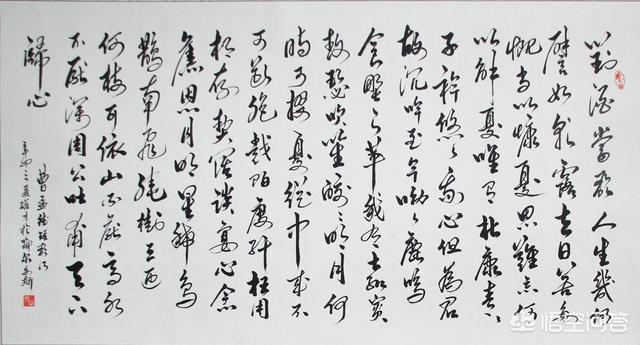 對酒當歌人生幾何
譬如朝露去日苦多
慨当以慷憂思難忘何
以解憂唯有杜康青々
子衿悠々我心但為君
故沉吟至今呦々鹿鳴
食野之苹我有嘉賓
鼓瑟吹笙皎々明月何
時可掇憂從中來不
可斷絕越陌度阡枉用
相存契闊談宴心念
舊恩月明星稀烏
鵲南飛繞樹三匝
何枝可依山不厭高水
不厭深周公吐哺天下
歸心
曹孟德短歌行
辛卯之夏
悟空问答